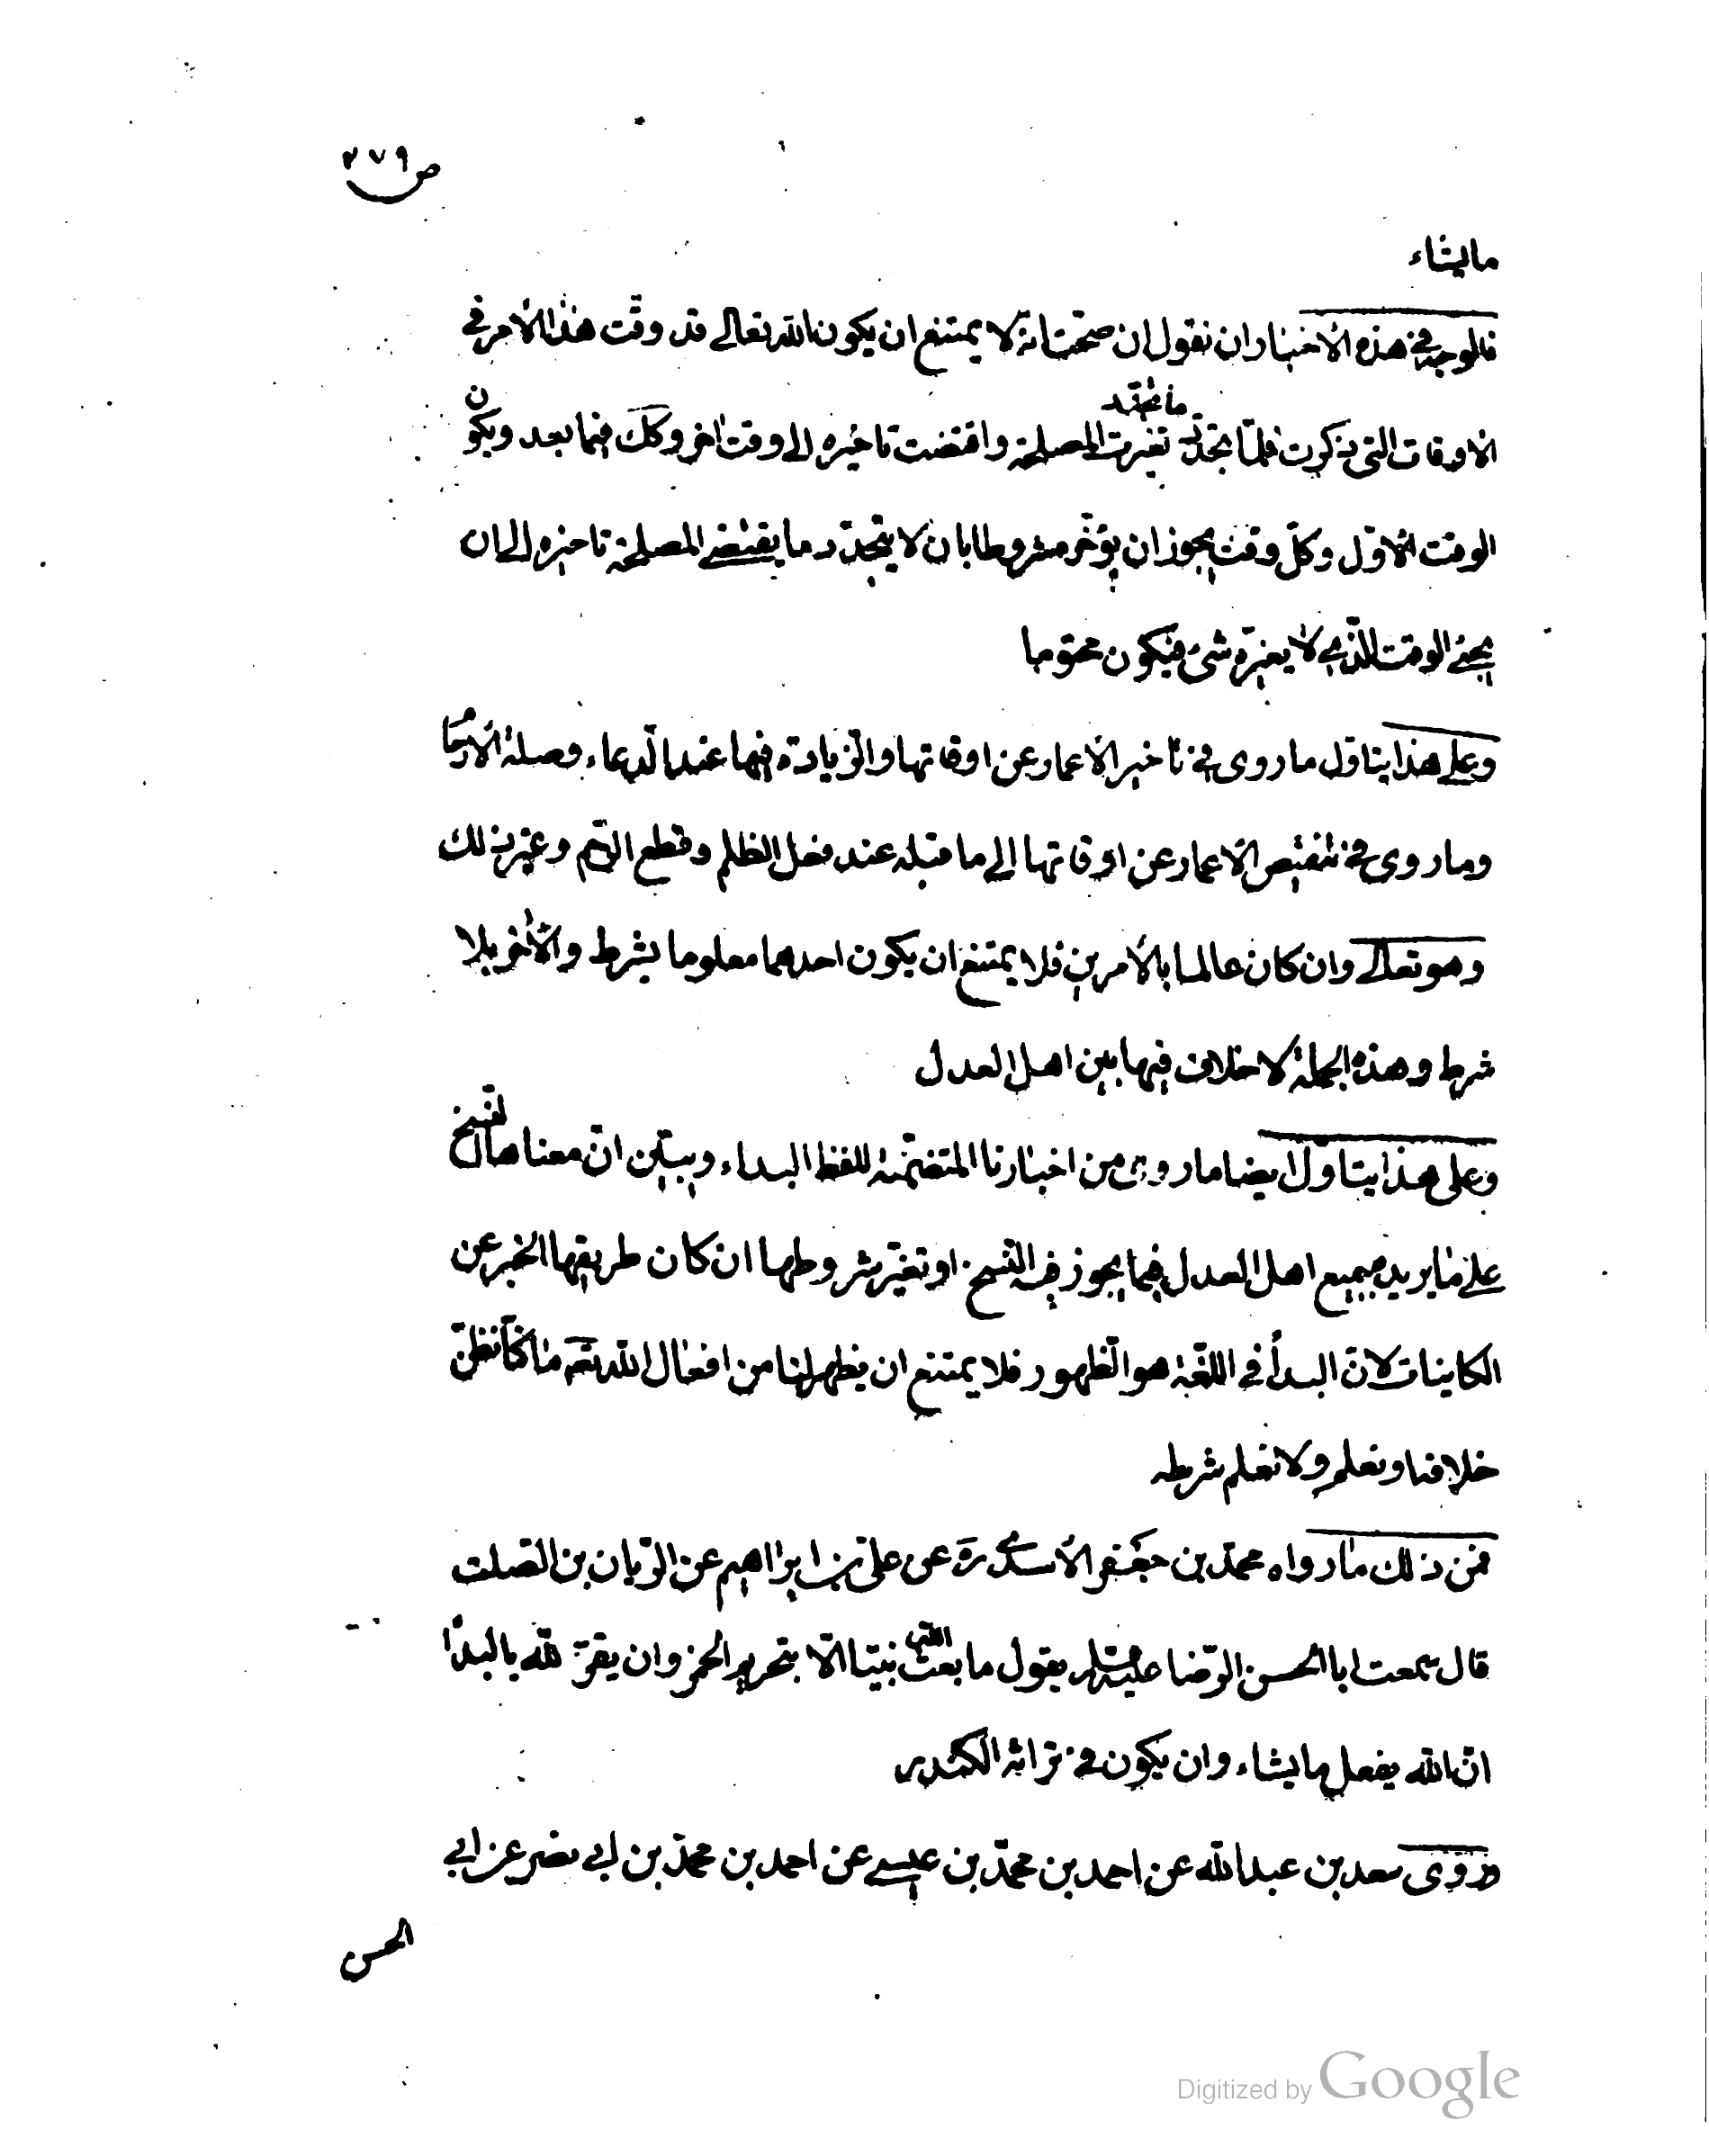 ص ٢٧٩
ما يشاء
فالوجه في هذه الأخبار ان نقول ان صحت انه لا يمتنع ان يكون الله تعالى قد وقت هذا الأمر في
الاوقات التي ذكرت فلما تجدد ما تجدد تغيرت المصلحة واقتضت تاخيره الى وقت اخر وكك فيما بعد ويكون
الوقت الاول وكل وقت يجوز ان يؤخر مشروطا بان لا يتجدد ما يقتضي المصلحة تاخيره الى ان
يجئ الوقت الذي لا يغيره شئ فيكون محتوما
وعلى هذا يتاول ما روى في تاخير الأعمار عن اوقاتها والزيادة فيها عند الدعاء وصلة الأرحام
وما روى في تنقيص الاعمار عن اوقاتها الى ما قبله عند فعل الظلم وقطع الرحم وغير ذلك
وهو تعالى وان كان عالما بالأمرين فلا يمتنع ان يكون احدهما معلوما بشرط والأخر بلا
شرط وهذه الجملة لا خلاف فيها بين اهل العدل
وعلى هذا يتاول ايضا ما روى من اخبارنا المتضمنة للفظ البداء ويبين ان معناها النسخ
على ما يريده جميع اهل العدل فيما يجوز فيه النسخ او تغير شروطها ان كان طريقها الخبر عن
الكاينات لان البدأ في اللغة هو الظهور فلا يمتنع ان يظهر لنا من افعال الله تعه ما كنا نظن
خلافه او نعلم ولا نعلم شرطه
فمن ذلك ما رواه محمد بن جعفر الأسدي ره عن علي بن ابراهيم عن الريان بن الصلت
قال سمعت ابا الحسن الرضا عليه السلام يقول ما بعث الله نبيا الا بتحريم الخمر وان يقر لله بالبدأ
ان الله يفعل ما يشاء وان يكون في تراثه الكندر
وروى سعد بن عبد الله عن احمد بن محمد بن عيسى عن احمد بن محمد بن ابي نصر عن ابي
الحسن
Digitized by Google